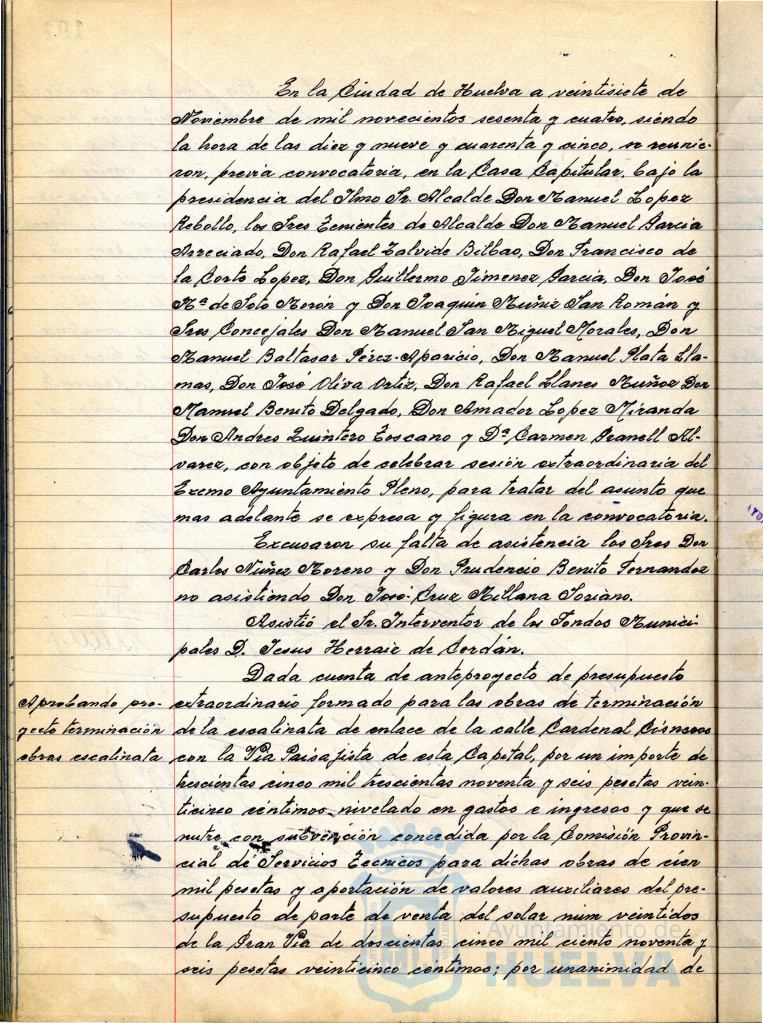 En la Ciudad de Huelva a veintisiete de
Noviembre de mil novecientos sesenta y cuatro, siendo
la hora de las diez y nueve y cuarenta y cinco, se reunie-
ron, previa convocatoria, en la Casa Capitular, bajo la
presidencia del Ilmo Sr. Alcalde Don Manuel Lopez
Rebollo, los Sres Tenientes de Alcalde Don Manuel Garcia
Arreciado, Don Rafael Zalvide Bilbao, Don Francisco de
la Corte Lopez, Don Guillermo Jimenez Garcia, Don José
Mª de Soto Morón y Don Joaquín Muñiz San Román y
Sres Concejales Don Manuel San Miguel Morales, Don
Manuel Baltasar Pérez-Aparicio, Don Manuel Plata Lla-
mas, Don José Oliva Ortiz, Don Rafael Llanes Muñoz Don
Manuel Benito Delgado, Don Amador Lopez Miranda
Don Andres Quintero Toscano y Dª Carmen Granell Al-
varez, con objeto de celebrar sesión extraordinaria del
Excmo Ayuntamiento Pleno, para tratar del asunto que
mas adelante se expresa y figura en la convocatoria.
Excusaron su falta de asistencia los Sres Don
Carlos Nuñez Moreno y Don Prudencio Benito Fernandez
no asistiendo Don José Cruz Millana Soriano.
Asistió el Sr. Interventor de los Fondos Munici-
pales D. Jesus Herraiz de Cerdán.
Dada cuenta de anteproyecto de presupuesto
Aprobando pro-
yecto terminación
obras escalinata
extraordinario formado para las obras de terminación
de la escalinata de enlace de la calle Cardenal Cisneros
con la Via Paisajista de esta Capital, por un importe de
trescientas cinco mil trescientas noventa y seis pesetas vein-
ticinco céntimos, nivelado en gastos e ingresos y que se
nutre con subvención concedida por la Comisión Provin-
cial de Servicios Tecnicos para dichas obras de cien
mil pesetas y aportación de valores auxiliares del pre-
supuesto de parte de venta del solar num veintidos
de la Gran Via de doscientas cinco mil ciento noventa y
seis pesetas veinticinco centimos; por unanimidad de
Ayuntamiento de
HUELVA